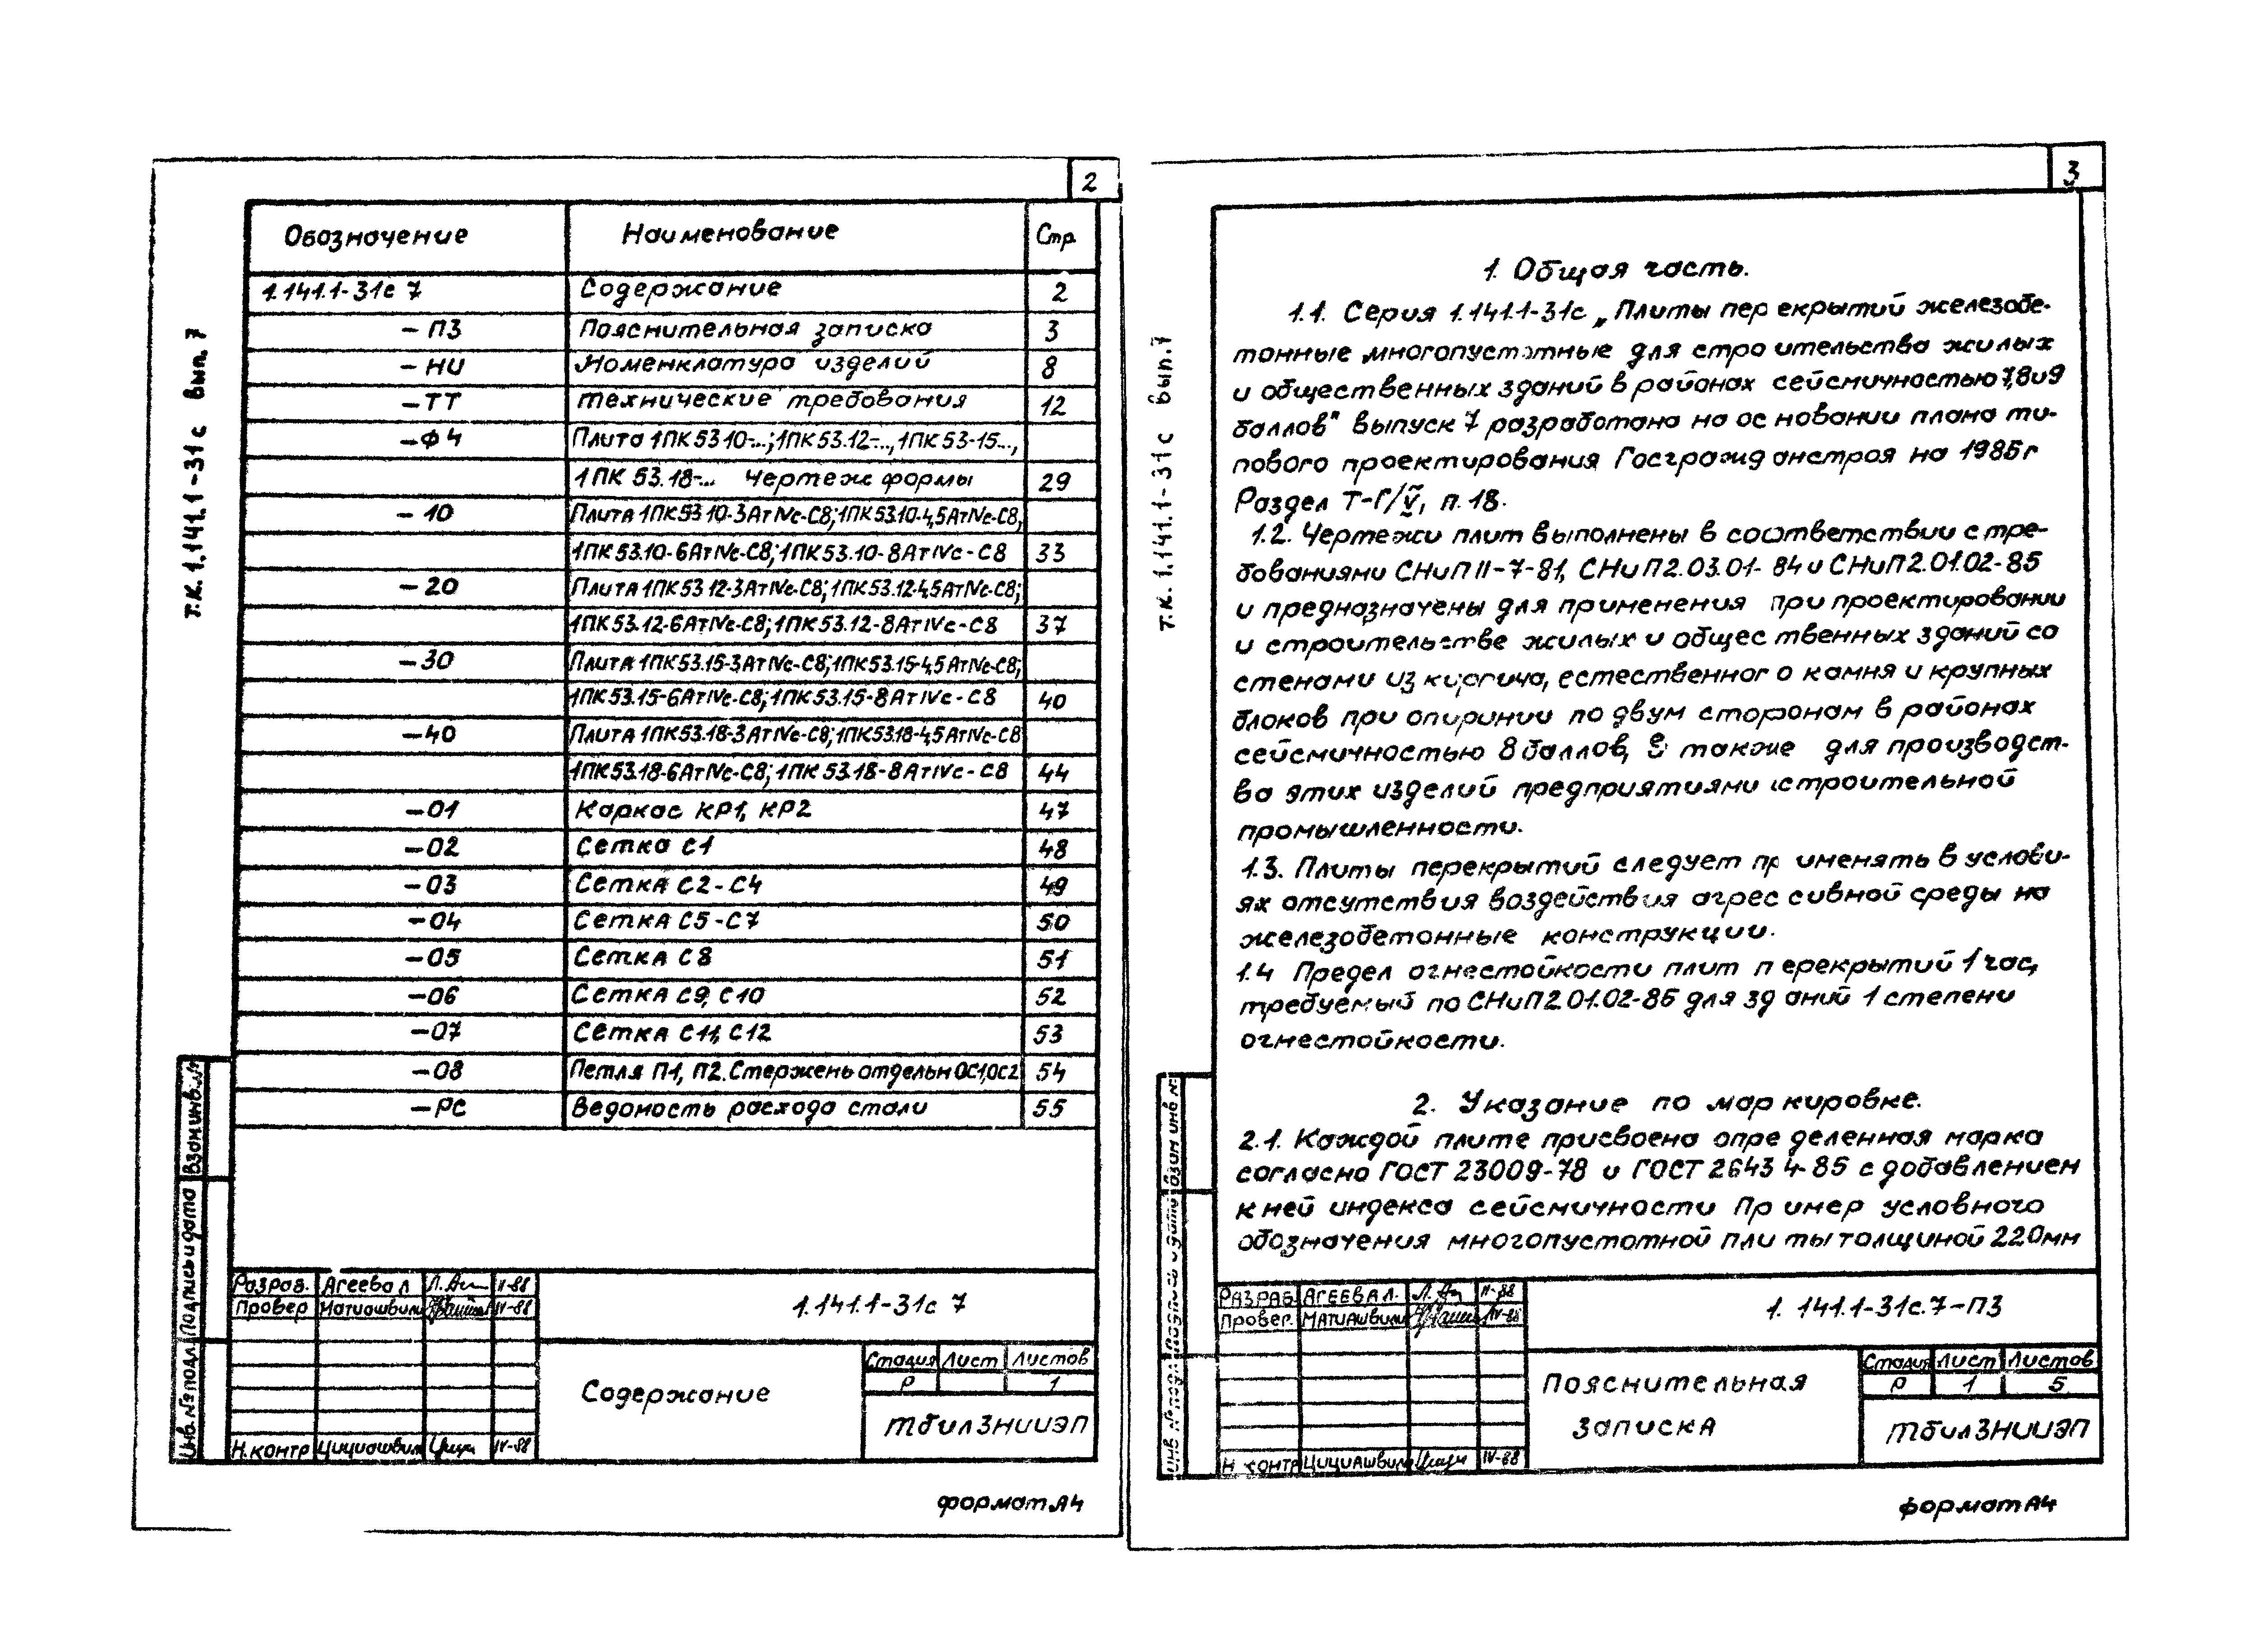 2
Обозначение Наименование Стр.
1.141.1-31с 7 Содержание 2
-ПЗ Пояснительная записка 3
-НИ Номенклатура изделий 8
-ТТ Технические требования 12
-Ф4 Плита 1ПК53 10-...;1ПК53.12-...,1ПК53-15...,
1ПК 53.18-... Чертеж формы 29
-10 Плита 1ПК53 10-3АтIVс-С8;1ПК53.10-4,5АтIVс-С8,
1ПК53.10-6АтIVс-С8;1ПК53.10-8АтIVс-С8 33
-20 Плита 1ПК53 12-3АтIVс-С8;1ПК53.12-4,5АтIVс-С8;
1ПК53.12-6АтIVс-С8;1ПК53.12-8АтIVс-С8 37
-30 Плита 1ПК53.15-3АтIVс-С8;1ПК53.15-4,5АтIVс-С8;
1ПК53.15-6АтIVс-С8;1ПК53.15-8АтIVс-С8 40
-40 Плита 1ПК53.18-3АтIVс-С8;1ПК53.18-4,5АтIVс-С8
1ПК53.18-6АтIVс-С8;1ПК53.18-8АтIVс-С8 44
-01 Каркас КР1, КР2 47
-02 Сетка С1 48
-03 Сетка С2-С4 49
-04 Сетка С5-С7 50
-05 Сетка С8 51
-06 Сетка С9, С10 52
-07 Сетка С11, С12 53
-08 Петля П1, П2. Стержень отдельн ОС1,ОС2 54
-РС Ведомость расхода стали 55
Т.К. 1.141.1-31с вып. 7
Взам.инв.№
Подпись и дата
Инв.№ подл.
Разраб. Агеева Л II-88
Провер Матиашвили IV-88
Н.контр Цициашвили IV-88
1.141.1-31с 7
Содержание
Стадия Лист Листов
Р 1
ТбилЗНИИЭП
формат А4
3
1. Общая часть.
1.1. Серия 1.141.1-31с „Плиты перекрытий железобе-
тонные многопустотные для строительства жилых
и общественных зданий в районах сейсмичностью 7,8 и 9
баллов" выпуск 7 разработана на основании плана ти-
пового проектирования Госгражданстроя на 1986г
Раздел Т-Г/V, п.18.
1.2. Чертежи плит выполнены в соответствии с тре-
бованиями СНиП II-7-81, СНиП 2.03.01-84 и СНиП 2.01.02-85
и предназначены для применения при проектировании
и строительстве жилых и общественных зданий со
стенами из кирпича, естественного камня и крупных
блоков при опирании по двум сторонам в районах
сейсмичностью 8 баллов, а также для производст-
ва этих изделий предприятиями строительной
промышленности.
1.3. Плиты перекрытий следует применять в услови-
ях отсутствия воздействия агрессивной среды на
железобетонные конструкции.
1.4 Предел огнестойкости плит перекрытий 1 час,
требуемый по СНиП 2.01.02-85 для зданий 1 степени
огнестойкости.
2. Указание по маркировке.
2.1. Каждой плите присвоена определенная марка
согласно ГОСТ 23009-78 и ГОСТ 26434-85 с добавлением
к ней индекса сейсмичности Пример условного
обозначения многопустотной плиты толщиной 220мм
Т.К. 1.141.1-31с вып.7
Взам инв №
Подпись и дата
Инв №подл
Разраб Агеева Л. II-88
Провер. Матиашвили IV-88
Н контр Цициашвили IV-88
1. 141.1-31с.7-ПЗ
Пояснительная
записка
Стадия Лист Листов
Р 1 5
ТбилЗНИИЭП
формат А4